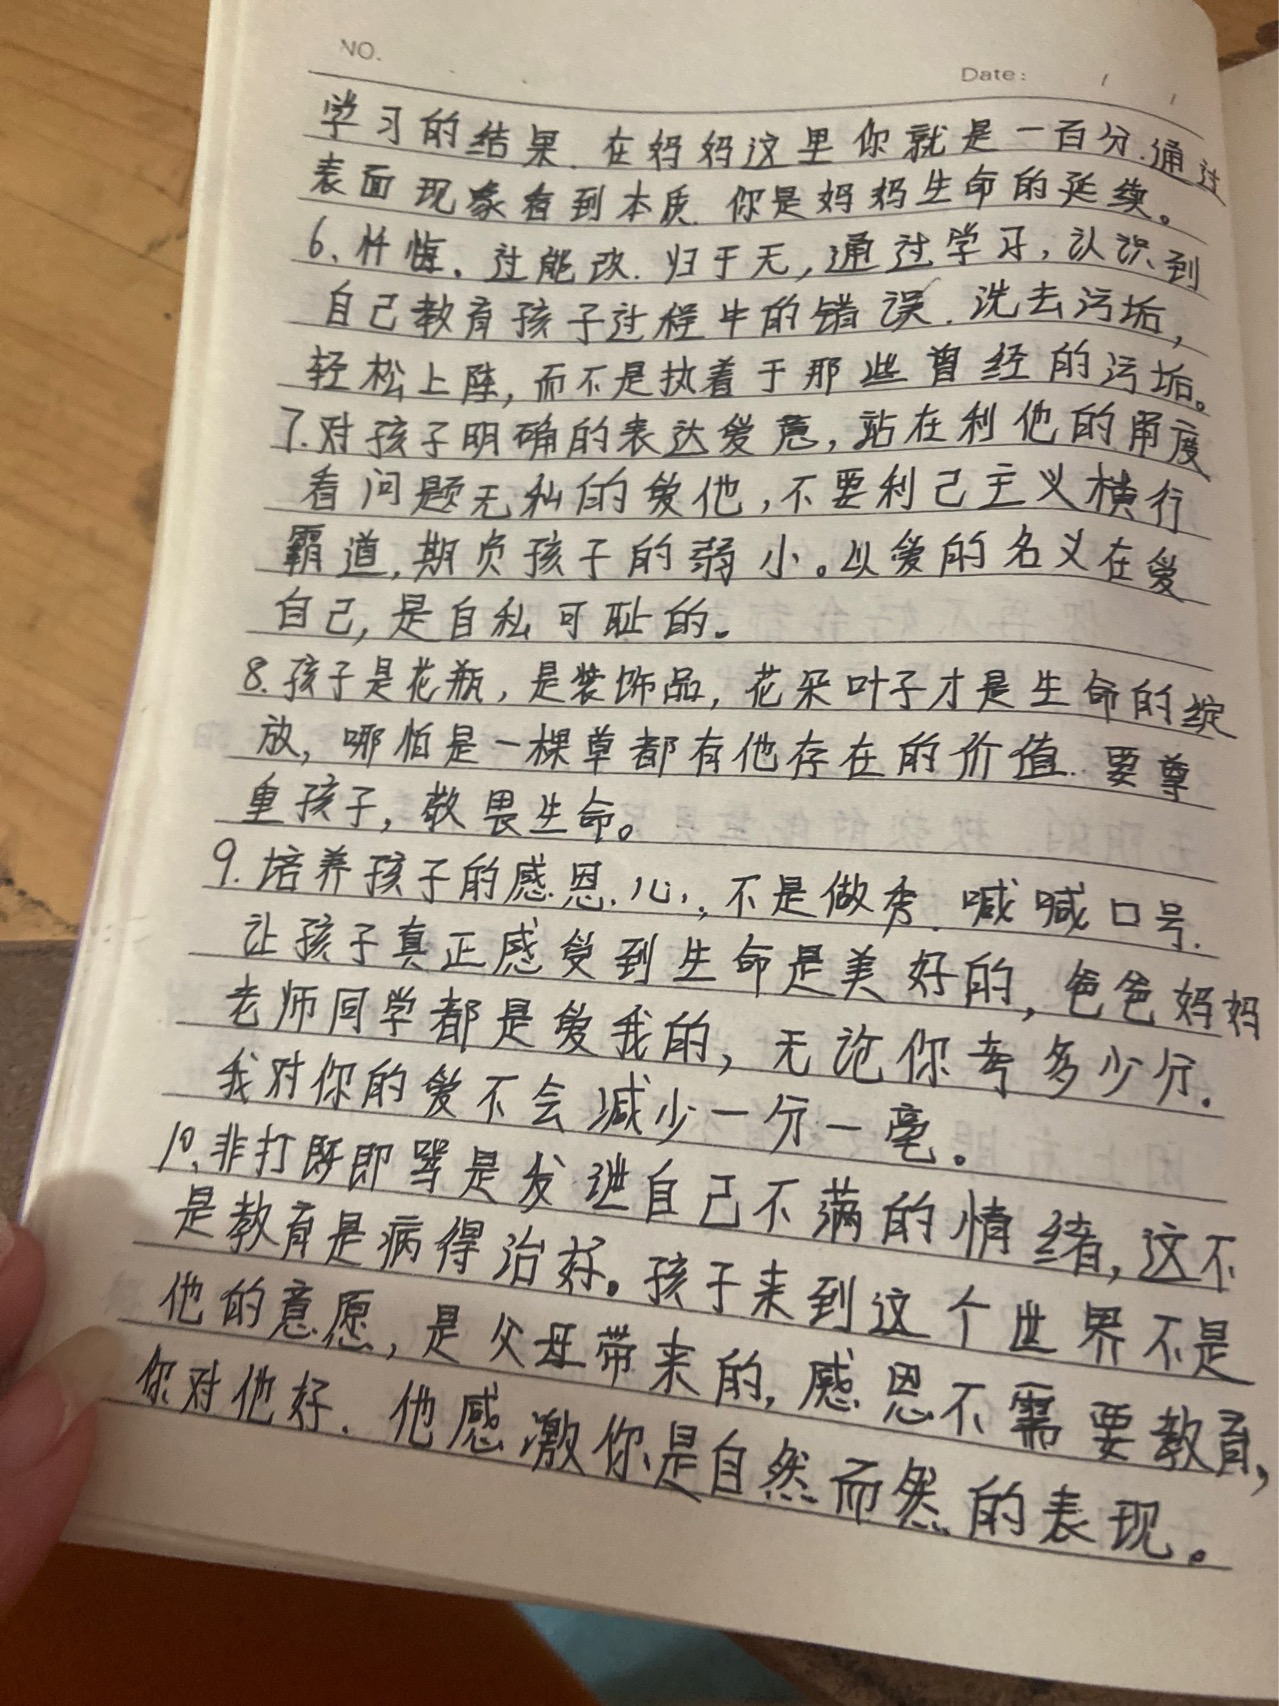 NO.
Date: / /
学习的结果.在妈妈这里你就是一百分.通过
表面现象看到本质.你是妈妈生命的延续。
6、忏悔.过能改.归于无,通过学习,认识到
自己教育孩子过程中的错误.洗去污垢,
轻松上阵,而不是执着于那些曾经的污垢。
7.对孩子明确的表达爱意,站在利他的角度
看问题无私的爱他,不要利己主义横行
霸道,期负孩子的弱小。以爱的名义在爱
自己,是自私可耻的。
8.孩子是花瓶,是装饰品,花朵叶子才是生命的绽
放,哪怕是一棵草都有他存在的价值.要尊
重孩子,敬畏生命。
9.培养孩子的感恩心,不是做秀.喊喊口号.
让孩子真正感受到生命是美好的,爸爸妈妈
老师同学都是爱我的,无论你考多少分.
我对你的爱不会减少一分一毫。
10、非打既即骂是发泄自己不满的情绪,这不
是教育是病得治好。孩子来到这个世界不是
他的意愿,是父母带来的,感恩不需要教育,
你对他好.他感激你是自然而然的表现。